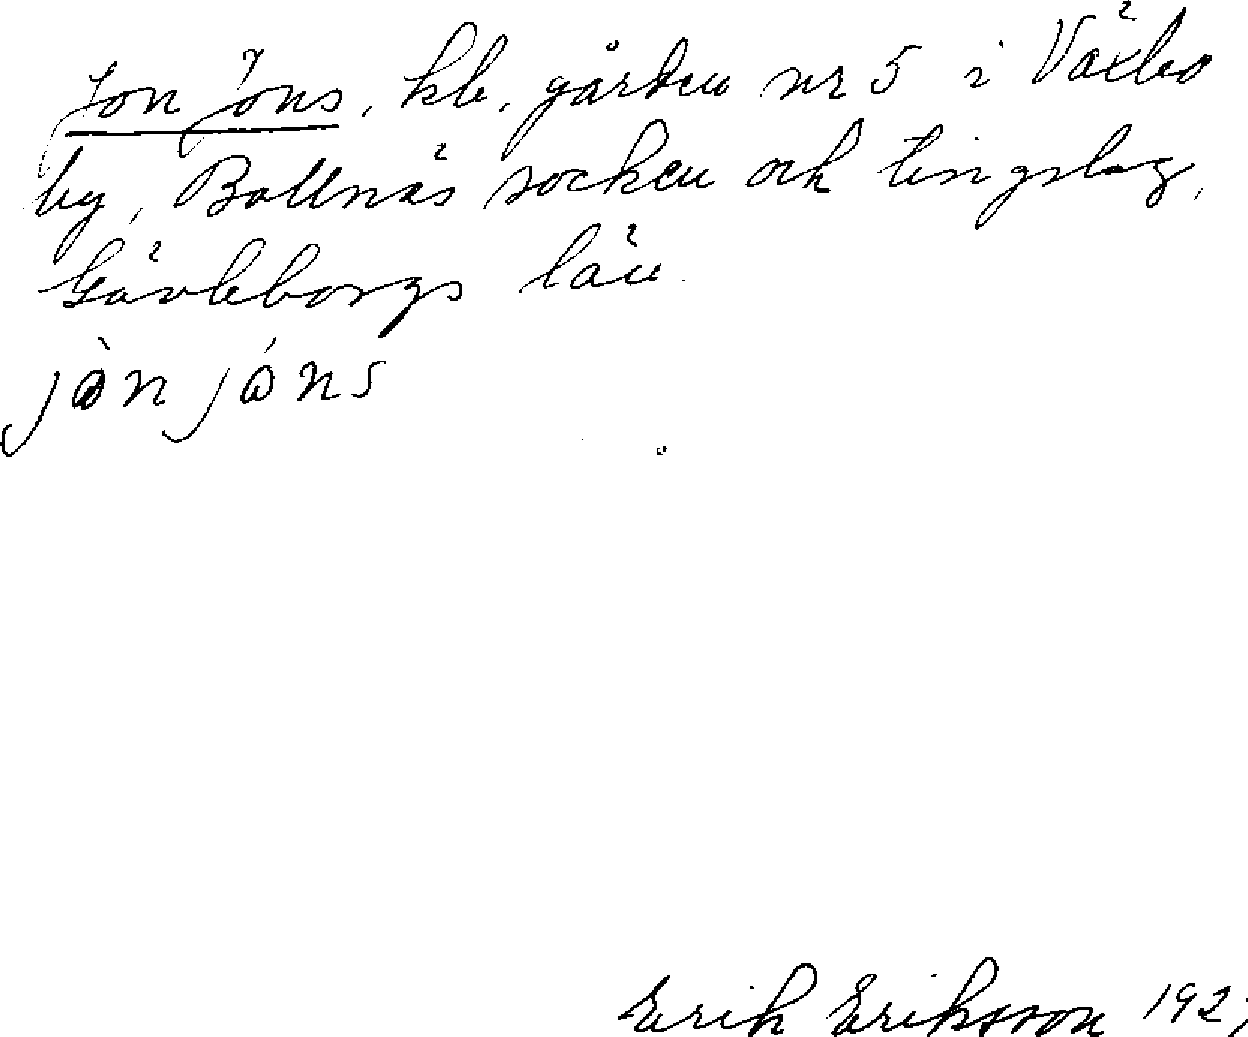 Jon Jöns, kb. gården nr 5 i Växbo
by, Bollnäs socken och tingslag,
Gävleborgs län.
jòn jóns
Erik Eriksson